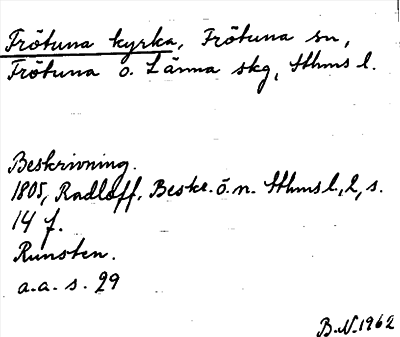 Frötuna kyrka, Frötuna sn,
Frötuna o. Länna skg, Sthms l.
Beskrivning.
1805, Radloff. Beskr. ö. n. Sthms l., 2, s.
14 f.
Runsten.
a.a. s. 29
B.N. 1962